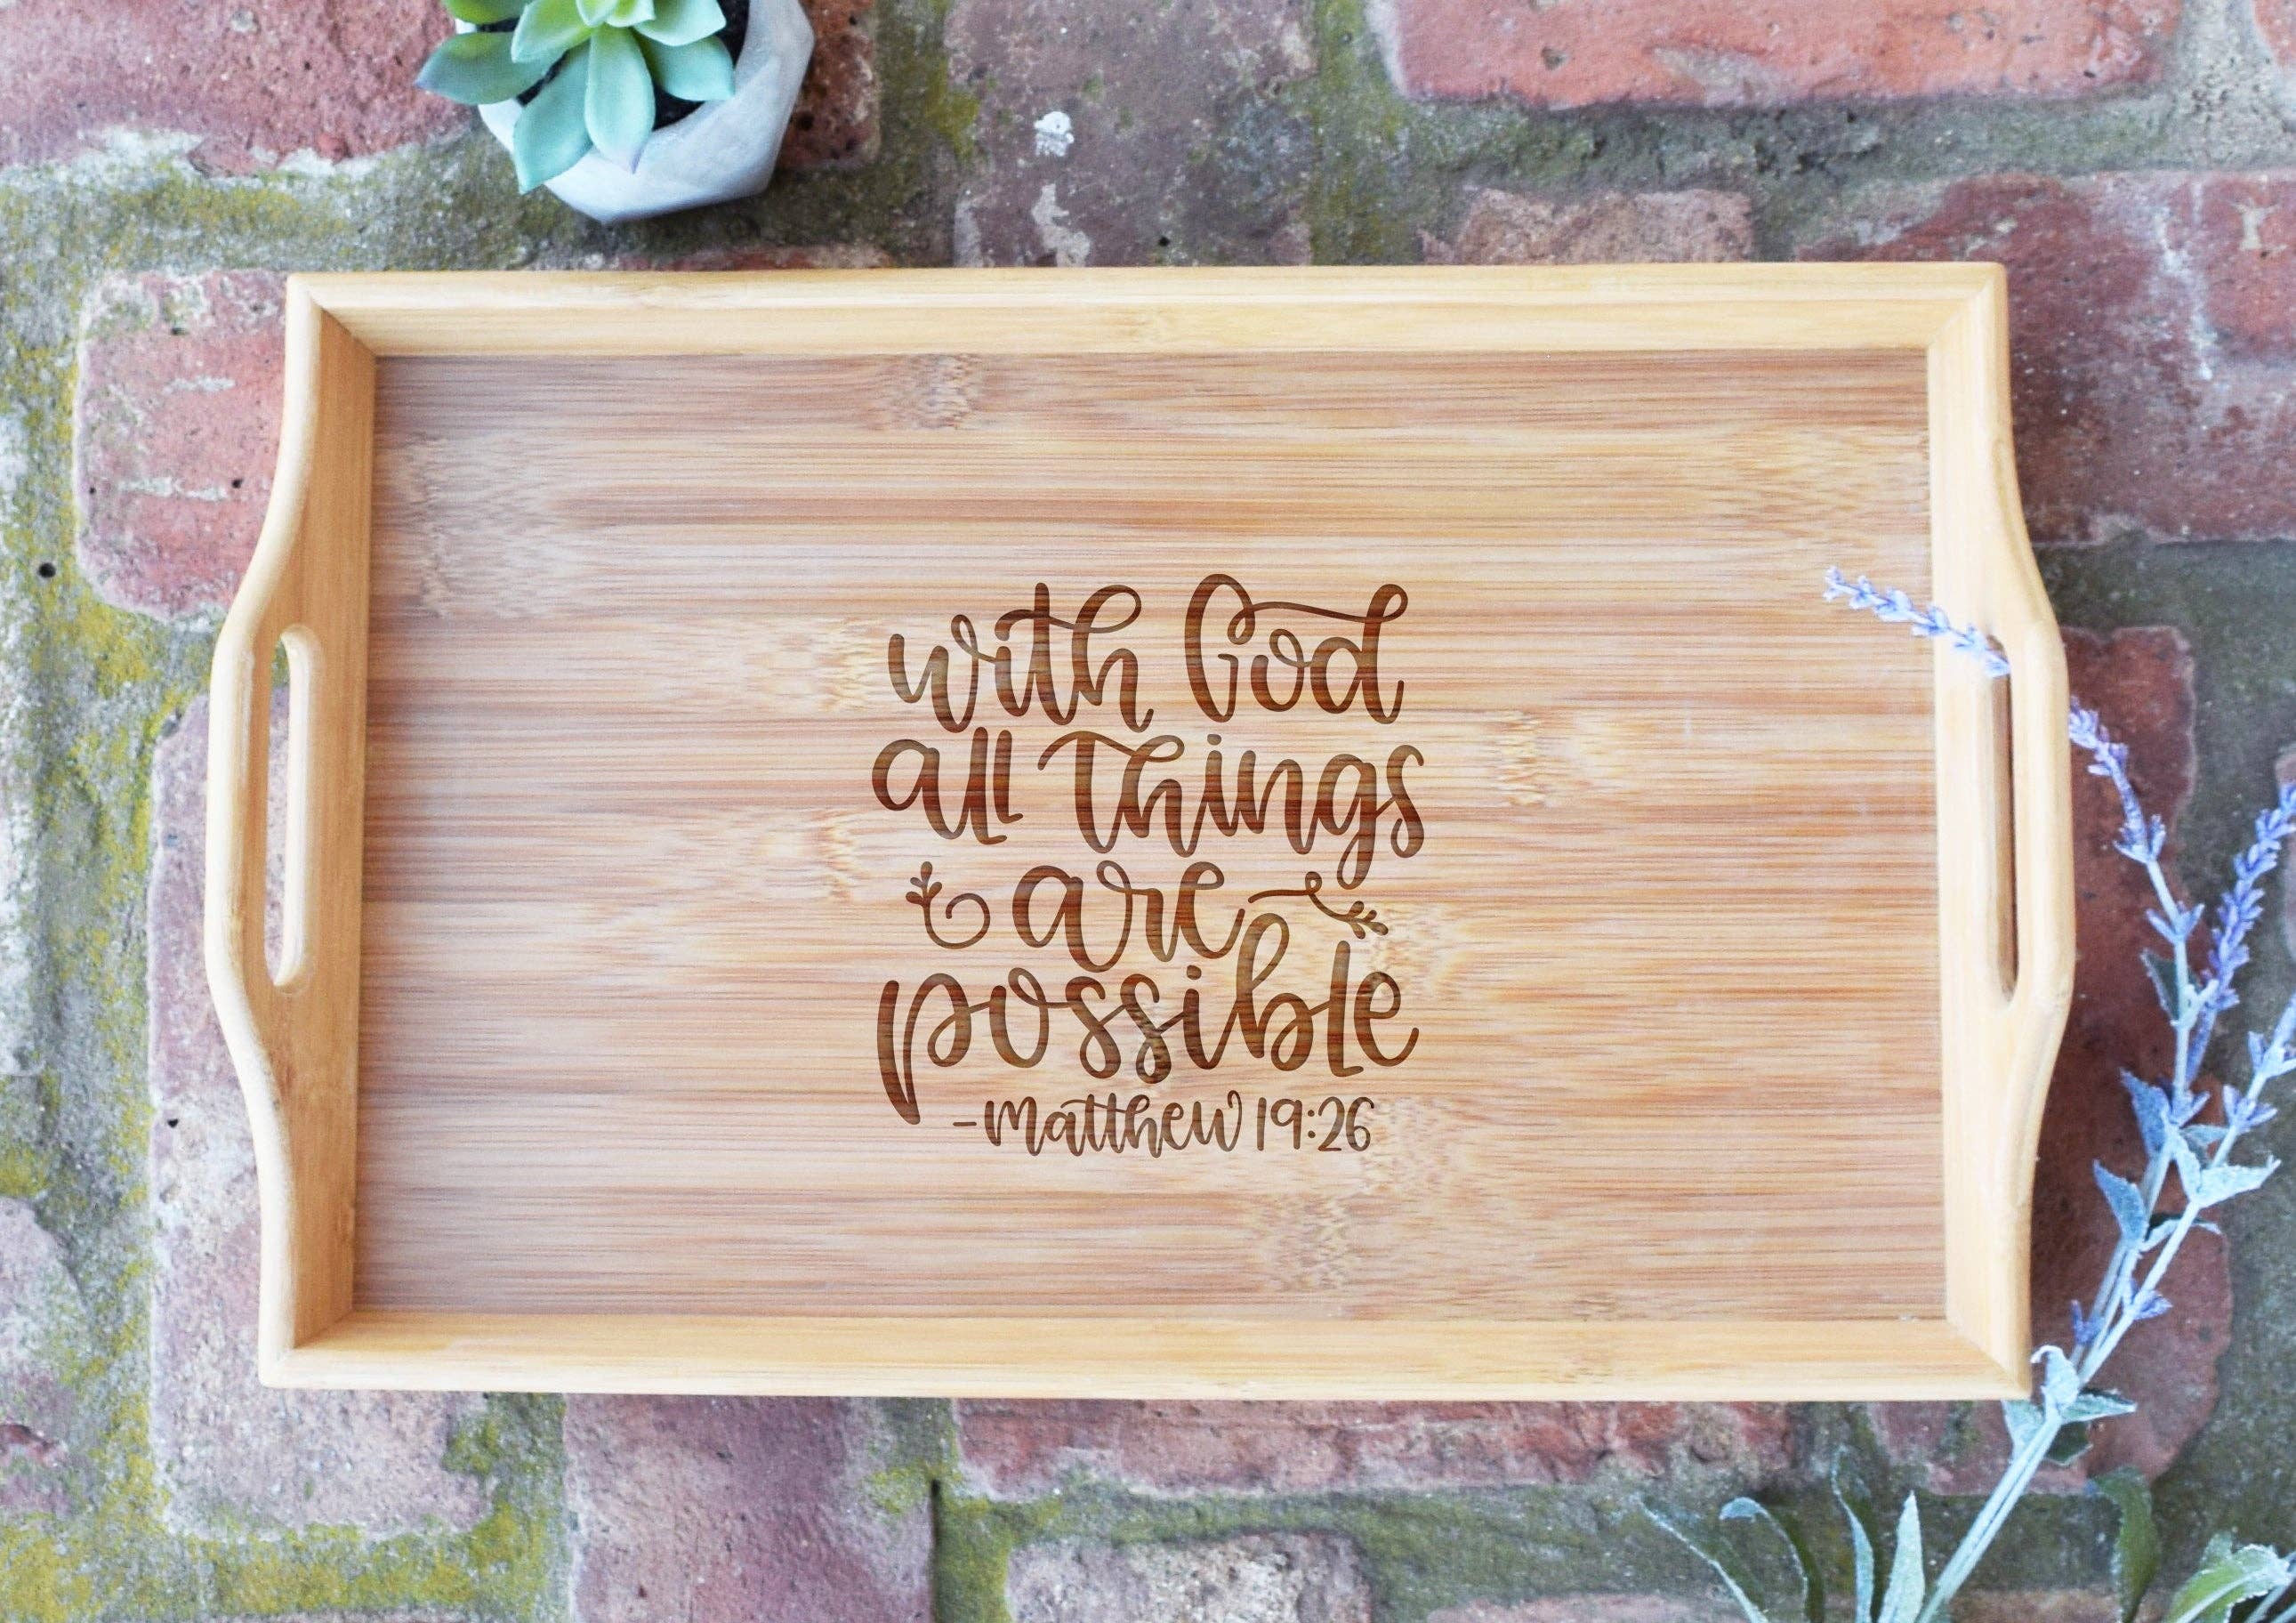 with God
all things
are
possible
-Matthew 19:26